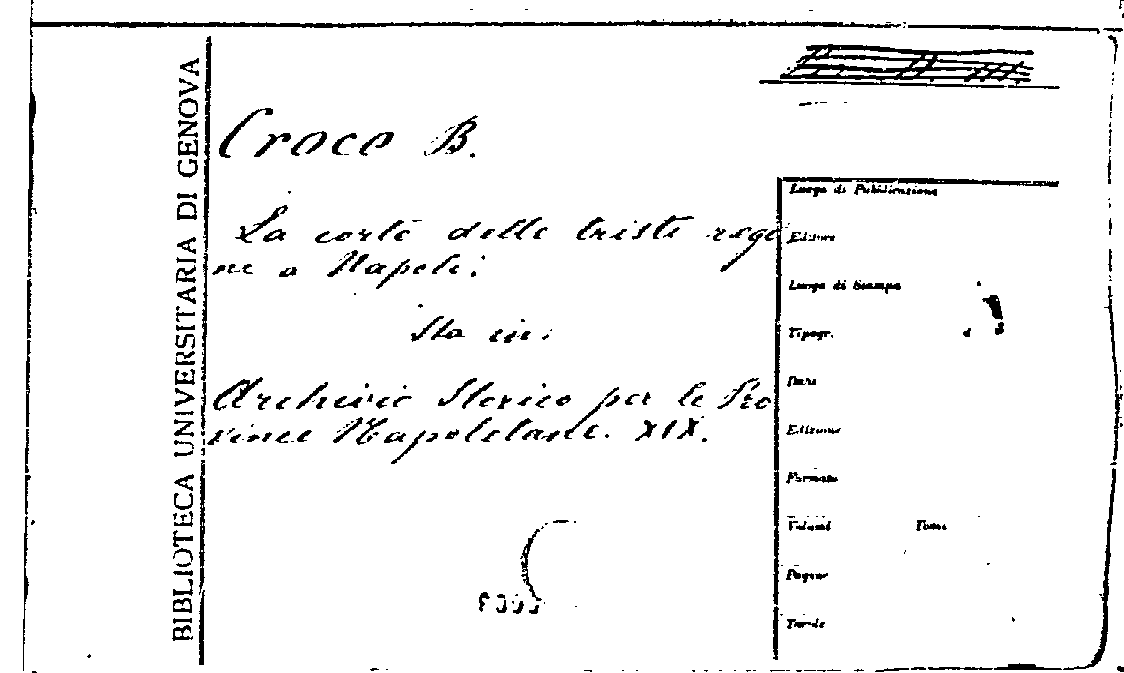 BIBLIOTECA UNIVERSITARIA DI GENOVA
Croce B.
La corte delle triste regi
ne a Napoli;
Sta in:
Archivio Storico per le Pro
vince Napoletane. XIX.
Luogo di Pubblicazione
Editore
Luogo di Stampa
Tipogr.
Data
Edizione
Formato
Volumi Tomi
Pagine
Tavole